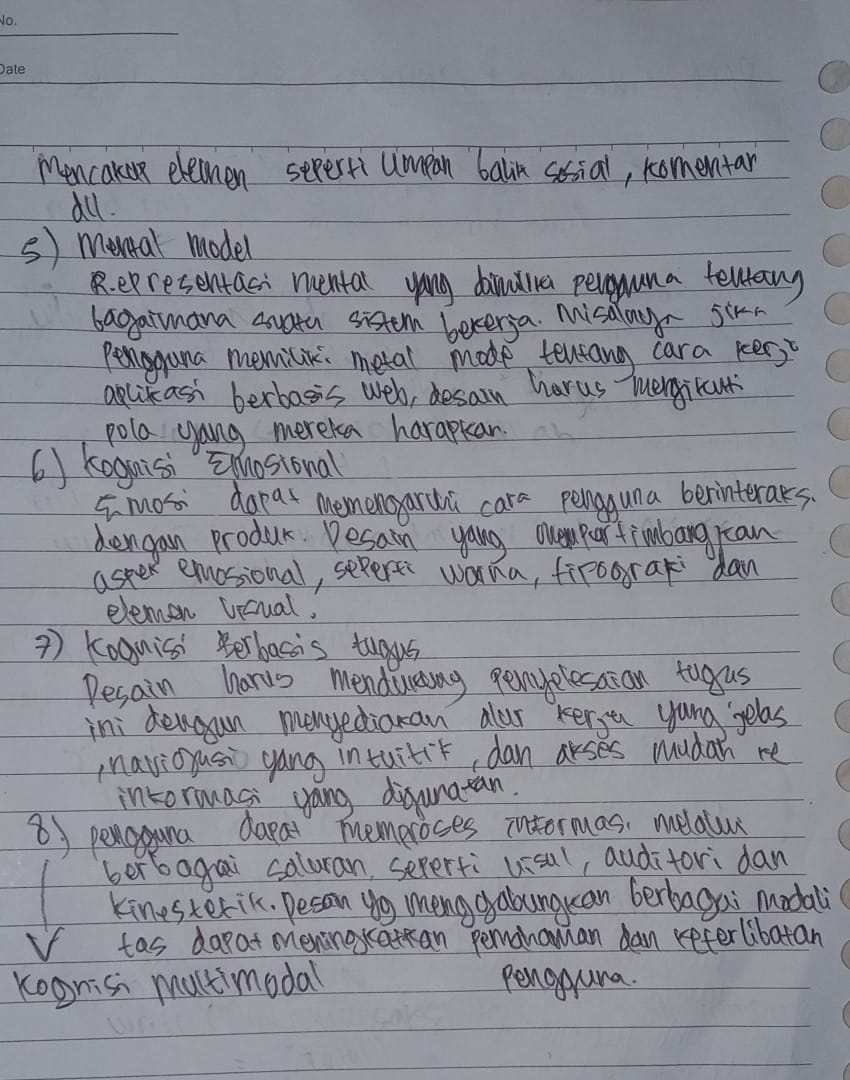 No.
Date
Mencakup elemen seperti Umpan balik sosial, komentar
dll.
5) Mental model
Representasi mental yang dimiliki pengguna tentang
bagaimana suatu sistem bekerja. Misalnya jika
Pengguna memiliki metal mode tentang cara kerja
aplikasi berbasis web, desain harus mengikuti
pola yang mereka harapkan.
6) Kognisi Emosional
Emosi dapat memengaruhi cara pengguna berinteraksi
dengan produk. Desain yang mempertimbangkan
aspek emossional, seperti warna, tipografi dan
elemen visual.
7) Kognisi Berbasis tugas
Desain harus mendukung penyelesaian tugas
ini dengan menyediakan alur kerja yang jelas
, naviogasi yang intuitif, dan akses mudah ke
informasi yang digunakan.
8) pengguna dapat memproses informasi melalui
berbagai saluran, seperti visul, auditori dan
kinestetik. Desain yg menggabungkan berbagai modali
tas dapat meningkatkan pemahaman dan keterlibatan
Kognisi multimodal pengguna.